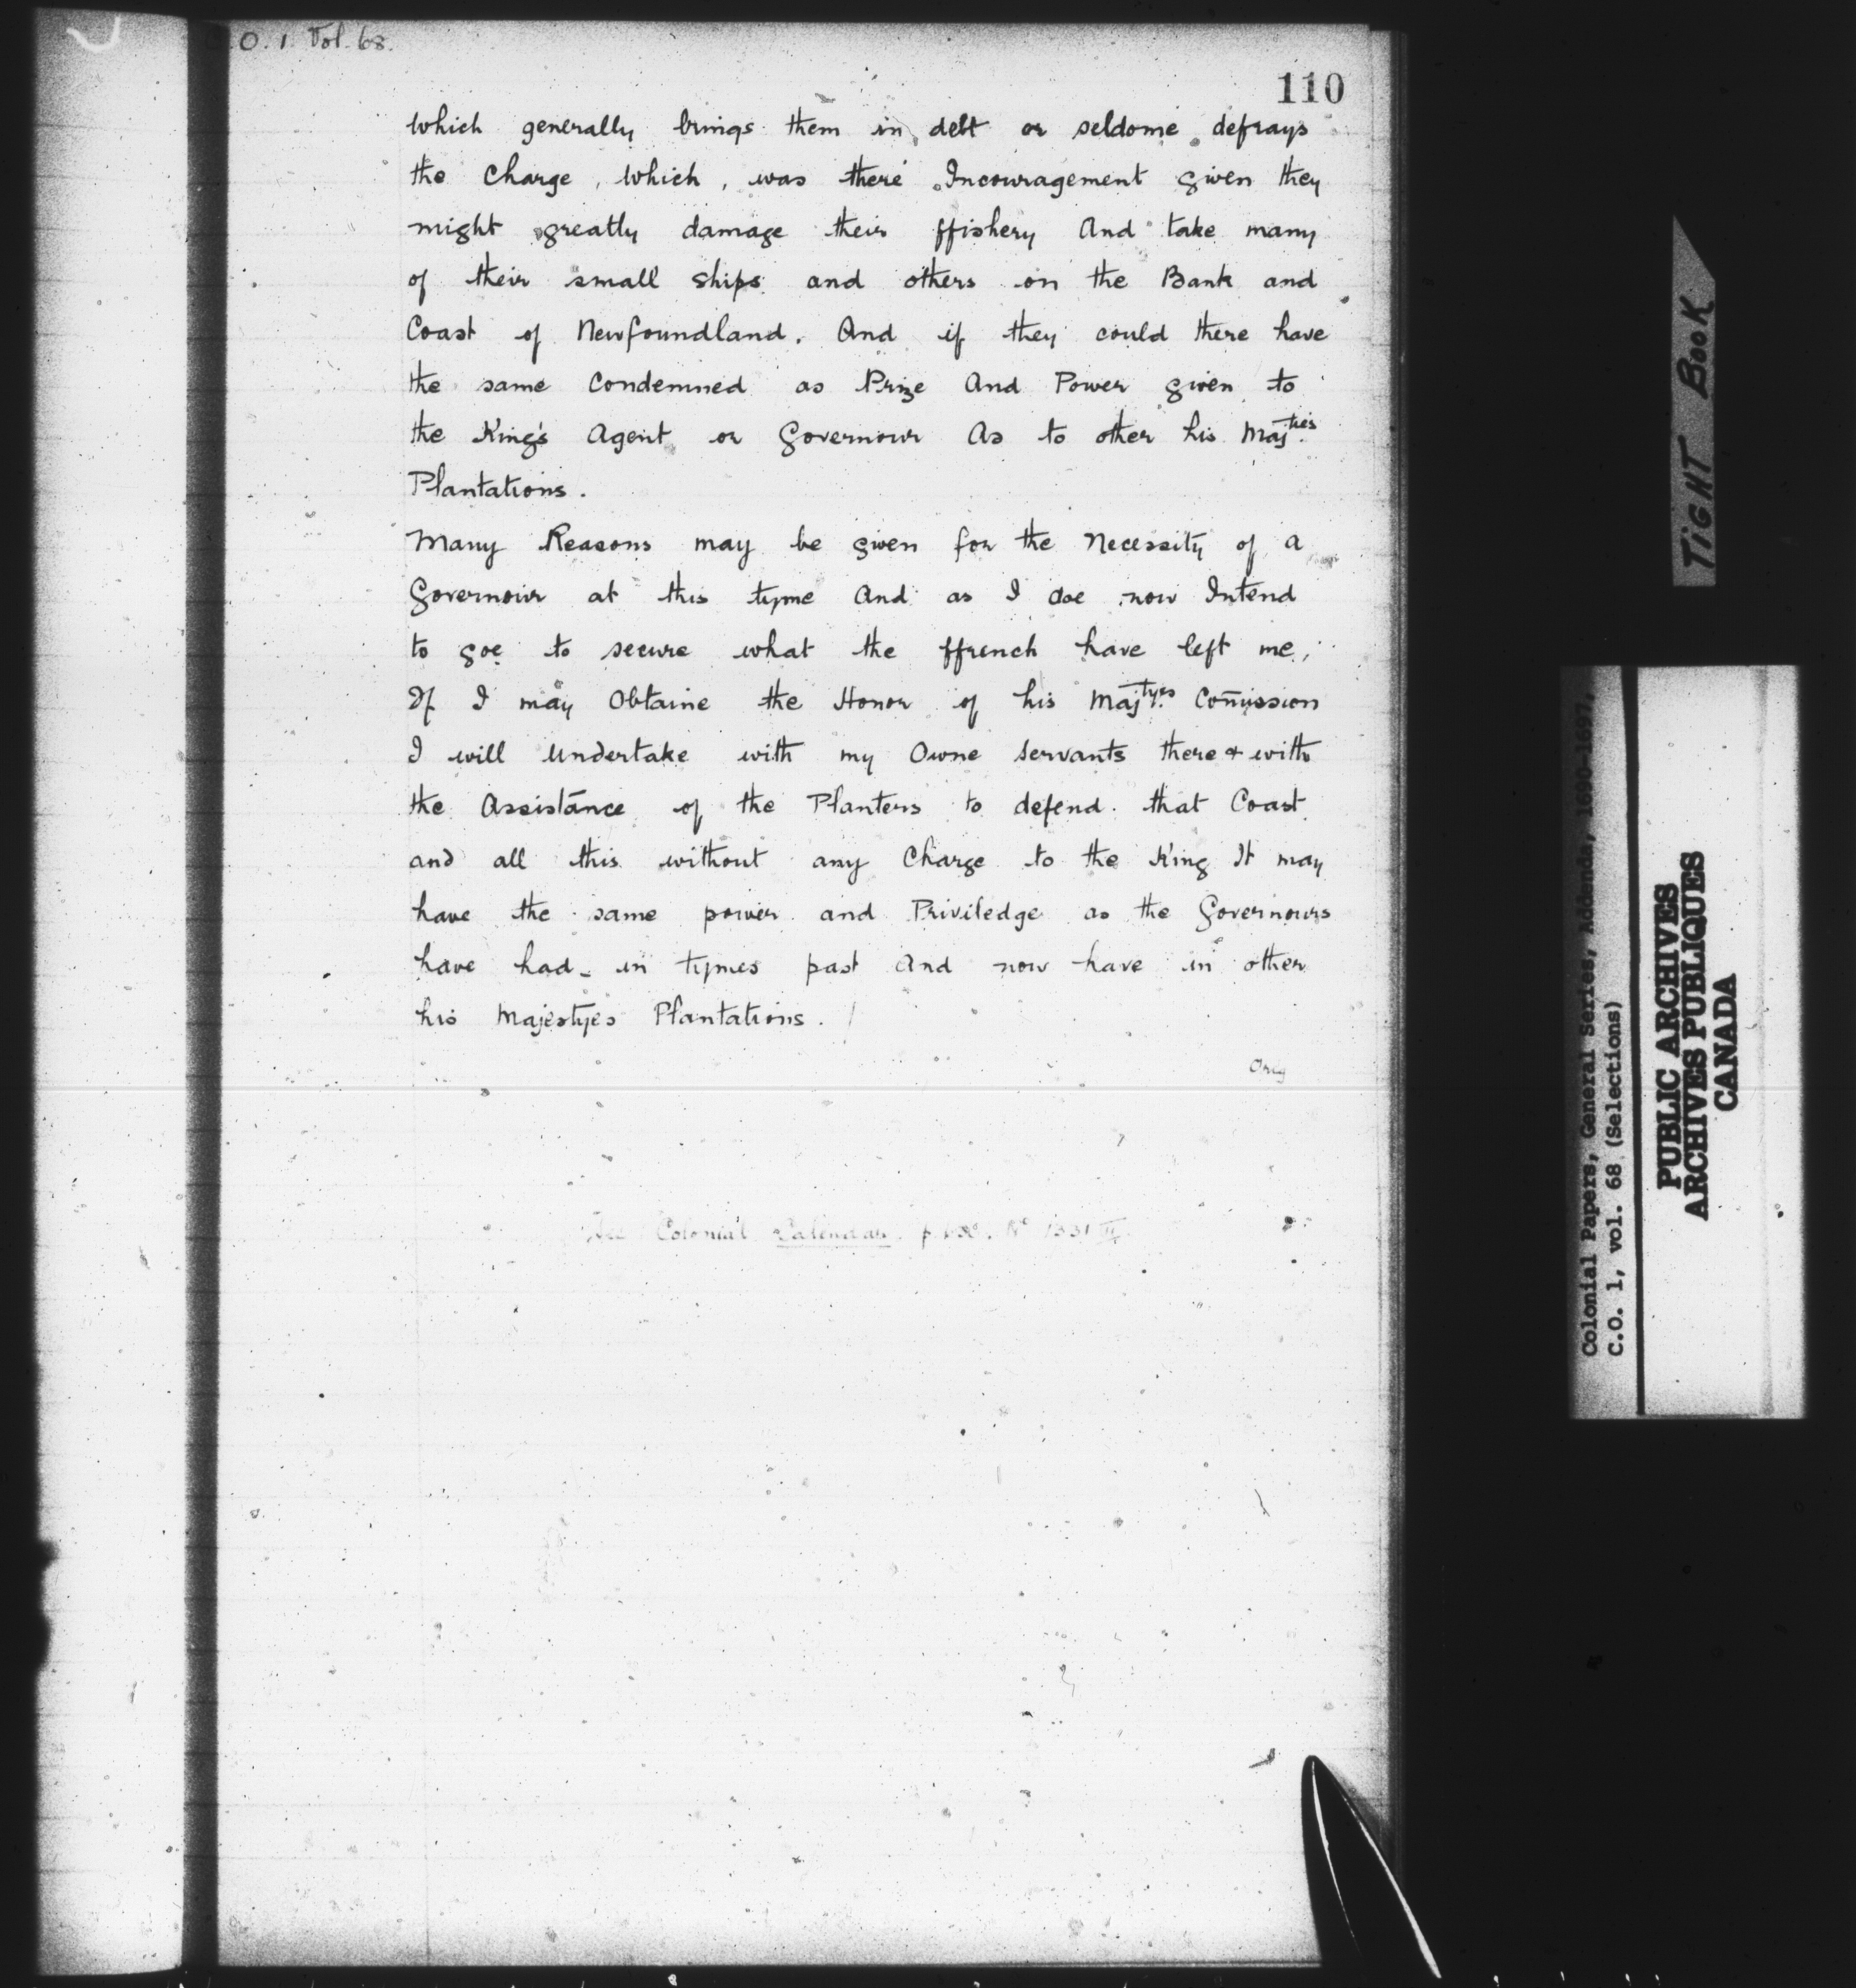 C.O. 1. Vol. 68.
110
which generally brings them in debt or seldome defrays
the Charge, which, was there Incouragement given they
might greatly damage their ffishery And take many
of their small ships and others on the Bank and
Coast of Newfoundland. And if they could there have
the same Condemned as Prize And Power given to
the King's Agent or Governour As to other his Maj.ties
Plantations.
Many Reasons may be given for the Necessity of a
Governour at this tyme And as I doe now Intend
to goe to secure what the ffrench have left me,
If I may Obtaine the Honor of his Maj.tyes Com̄ission
I will Undertake with my Owne Servants there & with
the Assistance of the Planters to defend that Coast
and all this without any Charge to the King It may
have the same power and Priviledge as the Governours
have had in tymes past And now have in other
his Majestyes Plantations.
Orig
See Colonial Calendar. p. No 1331 II
TIGHT BOOK
Colonial Papers, General Series, Addenda, 1690-1697,
C.O. 1, vol. 68 (Selections)
PUBLIC ARCHIVES
ARCHIVES PUBLIQUES
CANADA